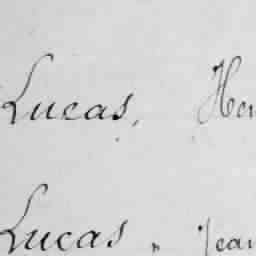 Lucas, Hen
Lucas, Jean